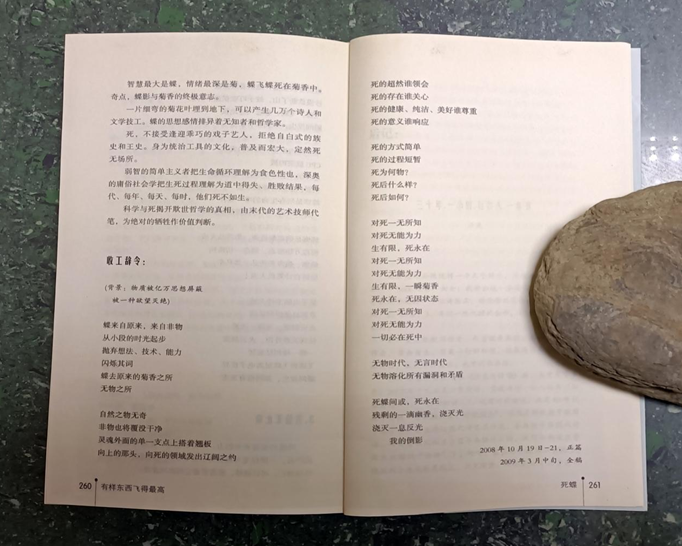 智慧最大是蝶，情绪最深是菊，蝶飞蝶死在菊香中。
奇点，蝶影与菊香的终极意志。
一片细弯的菊花叶埋到地下，可以产生几万个诗人和
文学技工。蝶的思想感情排异着无知者和哲学家。
死，不接受逢迎乖巧的戏子艺人，拒绝自白式的族
史和王史。身为统治工具的文化，普及而宏大，定然死
无场所。
弱智的简单主义者把生命循环理解为食色性也，深奥
的庸俗社会学把生死过程理解为道中得失。胜败结果，每
代、每年、每天、每时，他们死不如生。
科学与死揭开欺世哲学的真相，由末代的艺术技师代
笔，为绝对的牺牲作价值判断。
收工辞令：
(背景：物质被亿万思想屏蔽
被一种欲望灭绝)
蝶来自原来，来自非物
从小段的时光起步
抛弃想法、技术、能力
闪烁其词
蝶去原来的菊香之所
无物之所
自然之物无奇
非物也将覆没干净
灵魂外面的单一支点上搭着翘板
向上的那头，向死的领域发出辽阔之约
260 有样东西飞得最高
死的超然谁领会
死的存在谁关心
死的健康、纯洁、美好谁尊重
死的意义谁响应
死的方式简单
死的过程短暂
死为何物？
死后什么样？
死后如何？
对死一无所知
对死无能为力
生有限，死永在
对死一无所知
对死无能为力
生有限，一瞬菊香
死永在，无因状态
对死一无所知
对死无能为力
一切必在死中
无物时代，无言时代
无物溶化所有漏洞和矛盾
死蝶问或，死永在
残剩的一滴幽香，浇灭光
浇灭一息反光
我的倒影
2008年10月19日-21，正篇
2009年3月中旬，全稿
死蝶 261